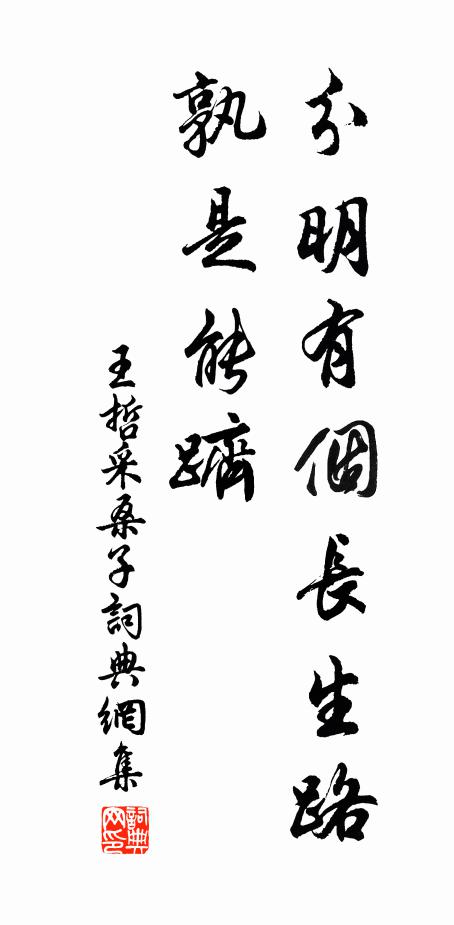 分明有個長生路
孰是能躋
王哲采桑子詞典網集
詞典网印